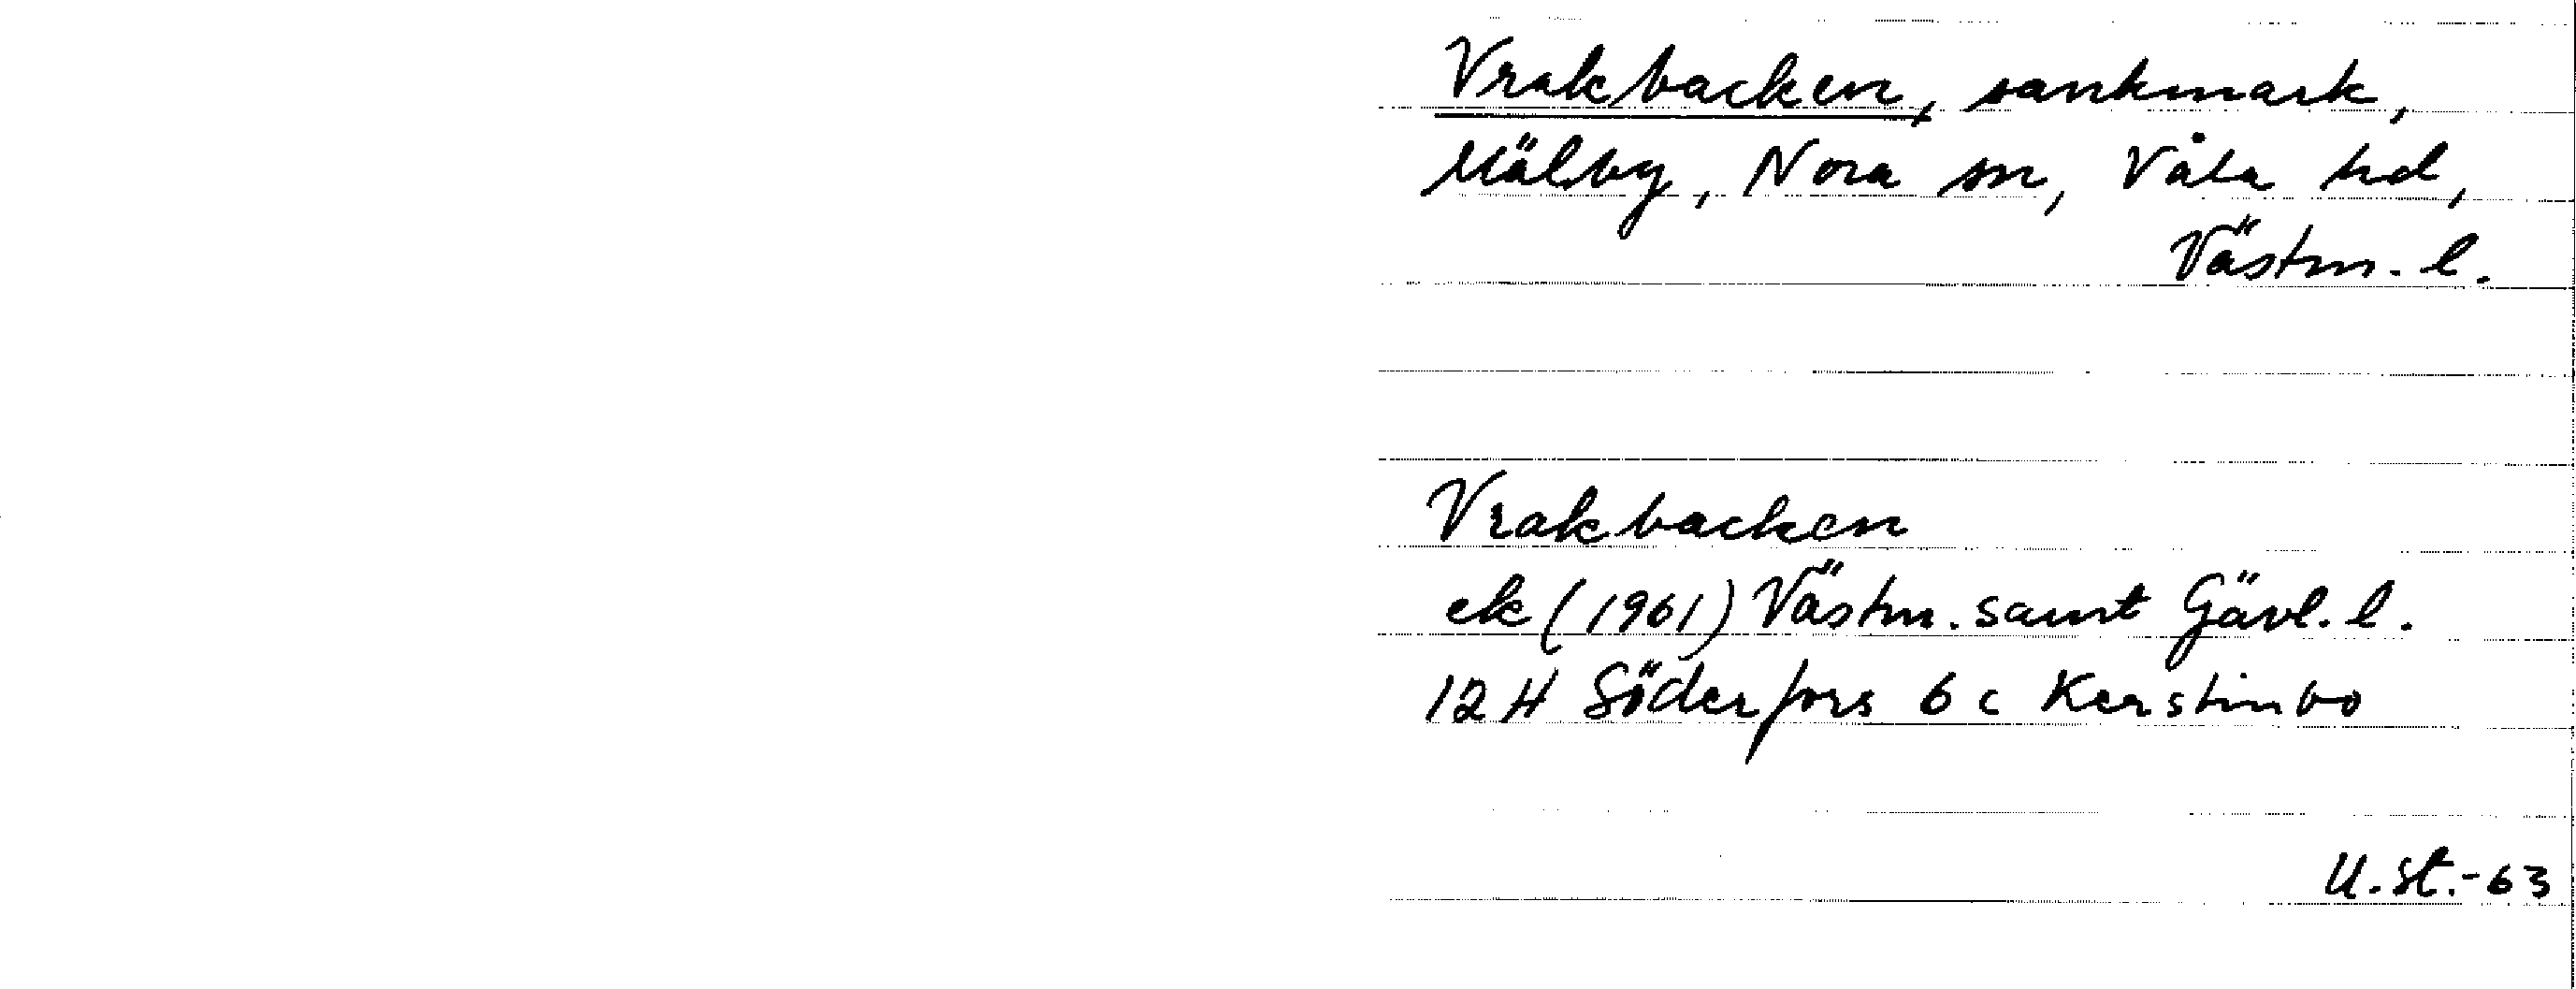 Vrakbacken, sankmark,
Mälby, Nora sn, Våla hd,
Västm. l.
Vrakbacken
ek (1961) Västm. samt Gävl. l.
12 H Söderfors 6 c Kerstinbo
U. St. -63